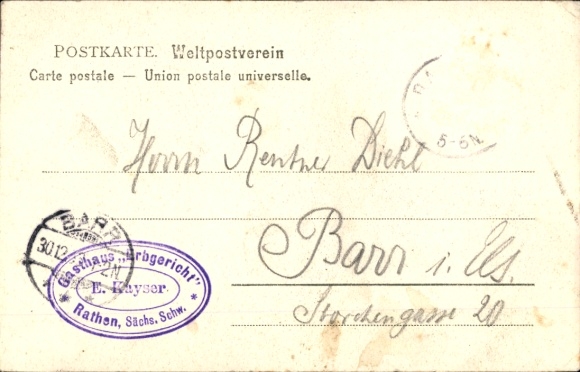 POSTKARTE. Weltpostverein
Carte postale — Union postale universelle.
5-6N
Herrn Rentner Diehl
Barr i. Els.
Storchengasse 20
BARR
30.12
2N
Gasthaus „Erbgericht"
E. Kayser
Rathen, Sächs. Schw.